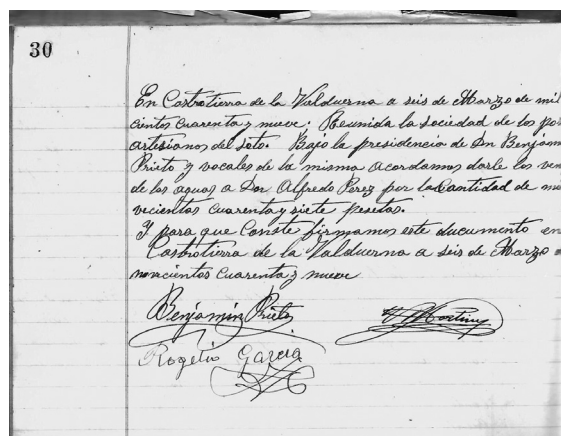 30
En Castrotierra de la Valduerna a seis de Marzo de mil
cientos cuarenta y nueve. Reunida la sociedad de los po
artesianos del Soto. Bajo la presidencia de Dn Benjam
Prieto y vocales de la misma acordamos darle los ven
de las aguas a Don Alfredo Perez por la Cantidad de no
vecientos cuarenta y siete pesetas.
Y para que Conste firmamos este documento en
Castrotierra de la Valduerna a seis de Marzo
novecientos cuarenta y nueve
Benjamin Prieto
Martinez
Rogelio Garcia